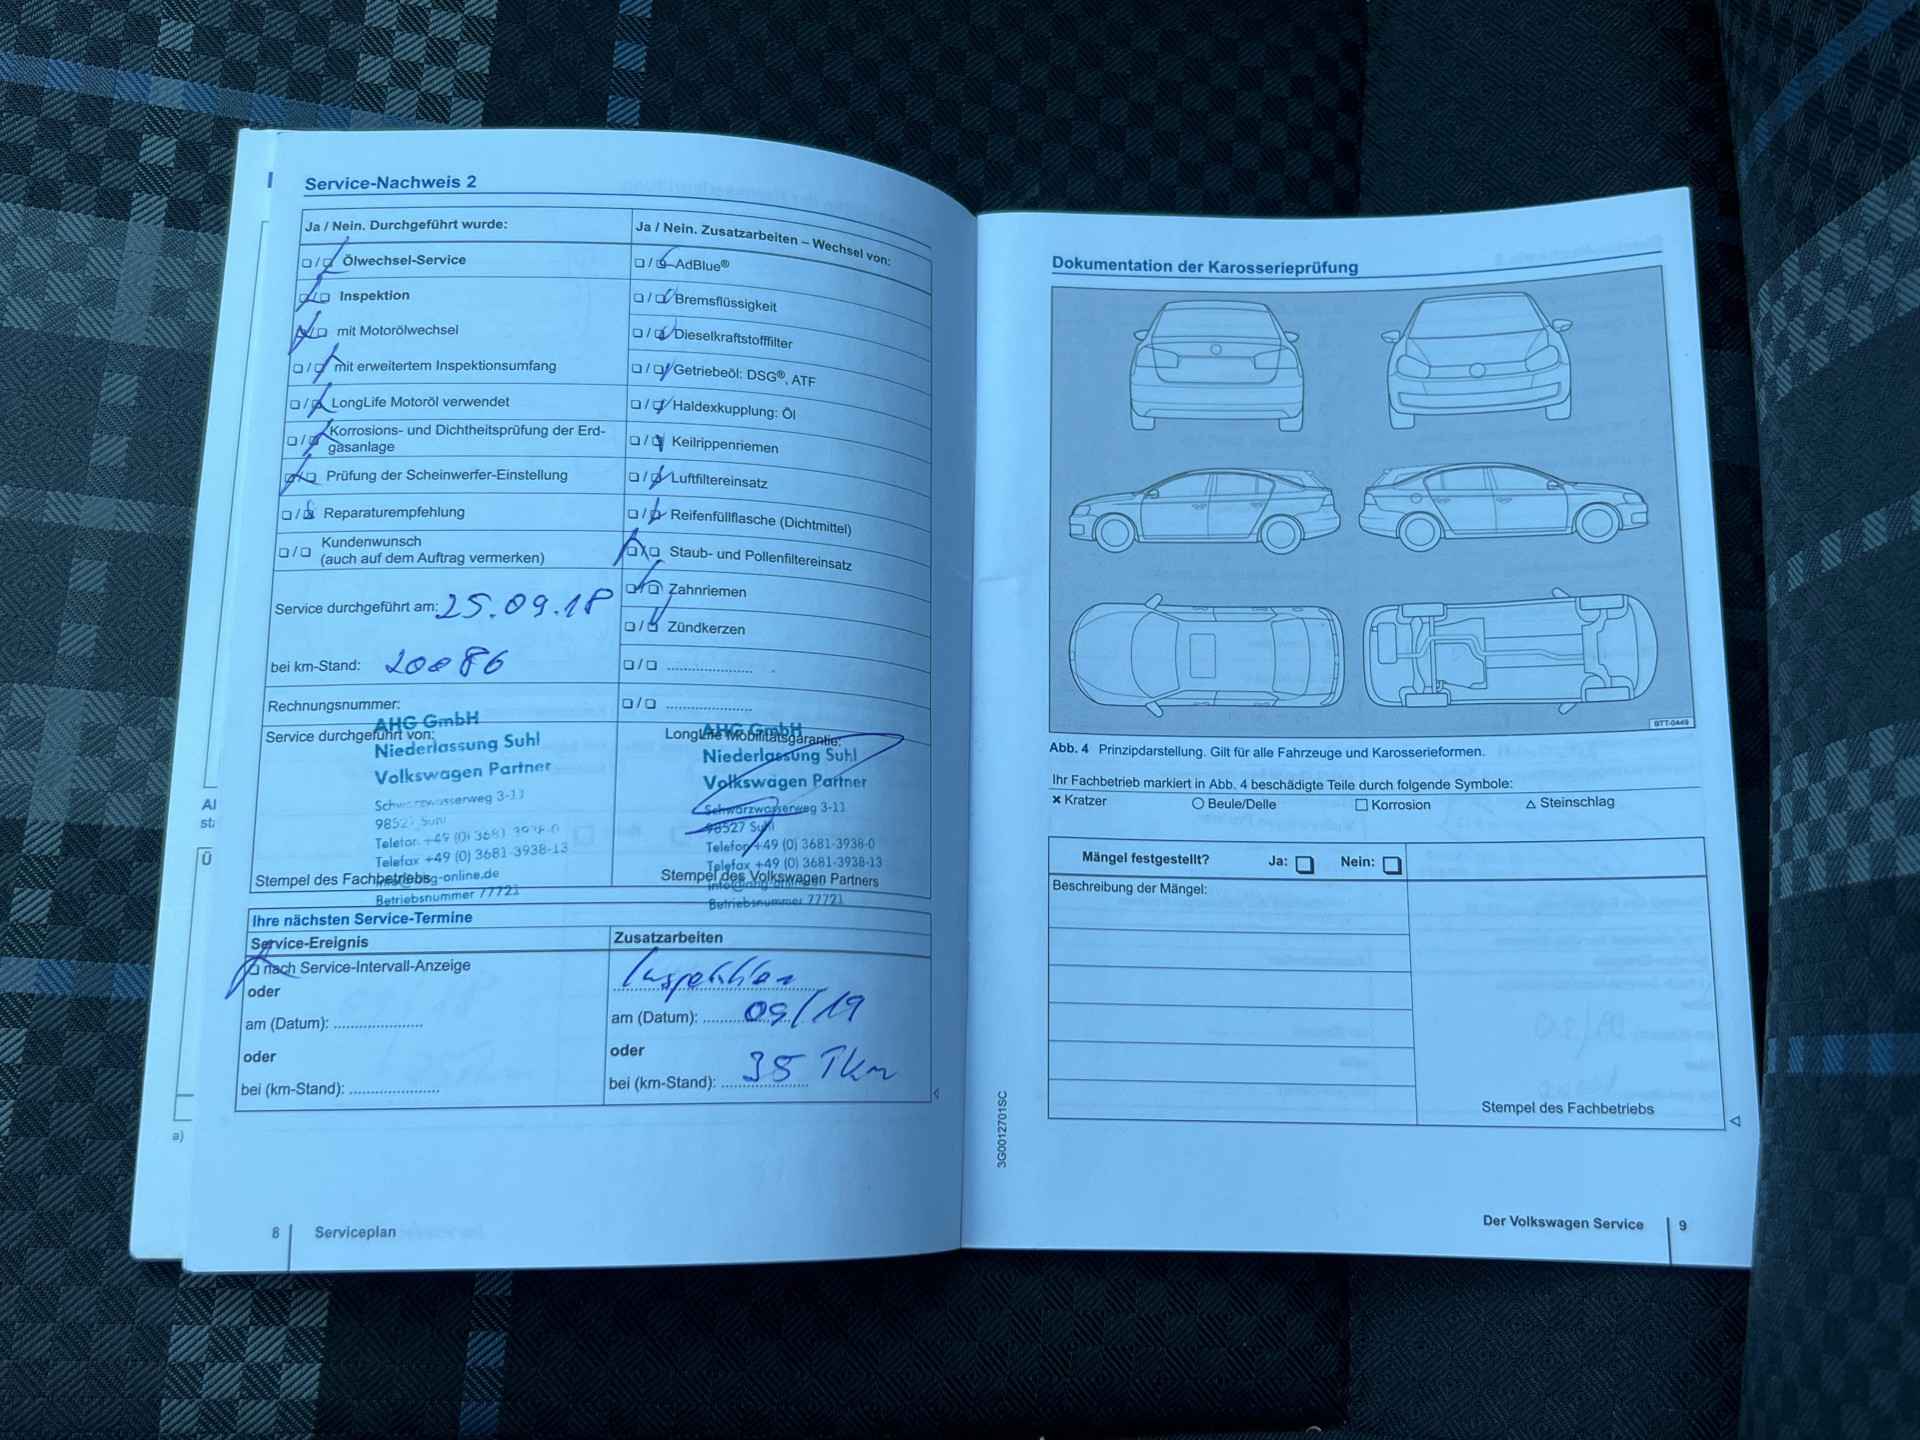 Service-Nachweis 2
Ja / Nein. Durchgeführt wurde:
Ölwechsel-Service
Inspektion
mit Motorölwechsel
mit erweitertem Inspektionsumfang
LongLife Motoröl verwendet
Korrosions- und Dichtheitsprüfung der Erd-
gasanlage
Prüfung der Scheinwerfer-Einstellung
Reparaturempfehlung
Kundenwunsch
(auch auf dem Auftrag vermerken)
Service durchgeführt am: 25.09.18
bei km-Stand: 20086
Rechnungsnummer:
Service durchgeführt von:
AHG GmbH
Niederlassung Suhl
Volkswagen Partner
Schwarzwasserweg 3-13
98527 Suhl
Telefon +49 (0) 3681-3938-0
Telefax +49 (0) 3681-3938-13
info@ahg-online.de
Betriebsnummer 77721
Stempel des Fachbetriebs
Ja / Nein. Zusatzarbeiten – Wechsel von:
AdBlue®
Bremsflüssigkeit
Dieselkraftstofffilter
Getriebeöl: DSG®, ATF
Haldexkupplung: Öl
Keilrippenriemen
Luftfiltereinsatz
Reifenfüllflasche (Dichtmittel)
Staub- und Pollenfiltereinsatz
Zahnriemen
Zündkerzen
LongLife Mobilitätsgarantie:
AHG GmbH
Niederlassung Suhl
Volkswagen Partner
Schwarzwasserweg 3-13
98527 Suhl
Telefon +49 (0) 3681-3938-0
Telefax +49 (0) 3681-3938-13
info@ahg-online.de
Betriebsnummer 77721
Stempel des Volkswagen Partners
Ihre nächsten Service-Termine
Service-Ereignis
nach Service-Intervall-Anzeige
oder
am (Datum):
oder
bei (km-Stand):
Zusatzarbeiten
Inspektion
am (Datum): 09/19
oder
bei (km-Stand): 35 Tkm
8 Serviceplan
Al
st
Ü
a)
Dokumentation der Karosserieprüfung
BTT-0449
Abb. 4 Prinzipdarstellung. Gilt für alle Fahrzeuge und Karosserieformen.
Ihr Fachbetrieb markiert in Abb. 4 beschädigte Teile durch folgende Symbole:
Kratzer Beule/Delle Korrosion Steinschlag
Mängel festgestellt? Ja: Nein:
Beschreibung der Mängel:
Stempel des Fachbetriebs
3G0012701SC
Der Volkswagen Service 9